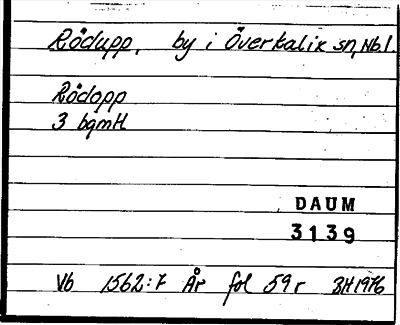 Rödupp, by i Överkalix sn, Nbl.
Rödopp
3 bgmH
DAUM
3139
Vb 1562:7 År fol 59r BH1976